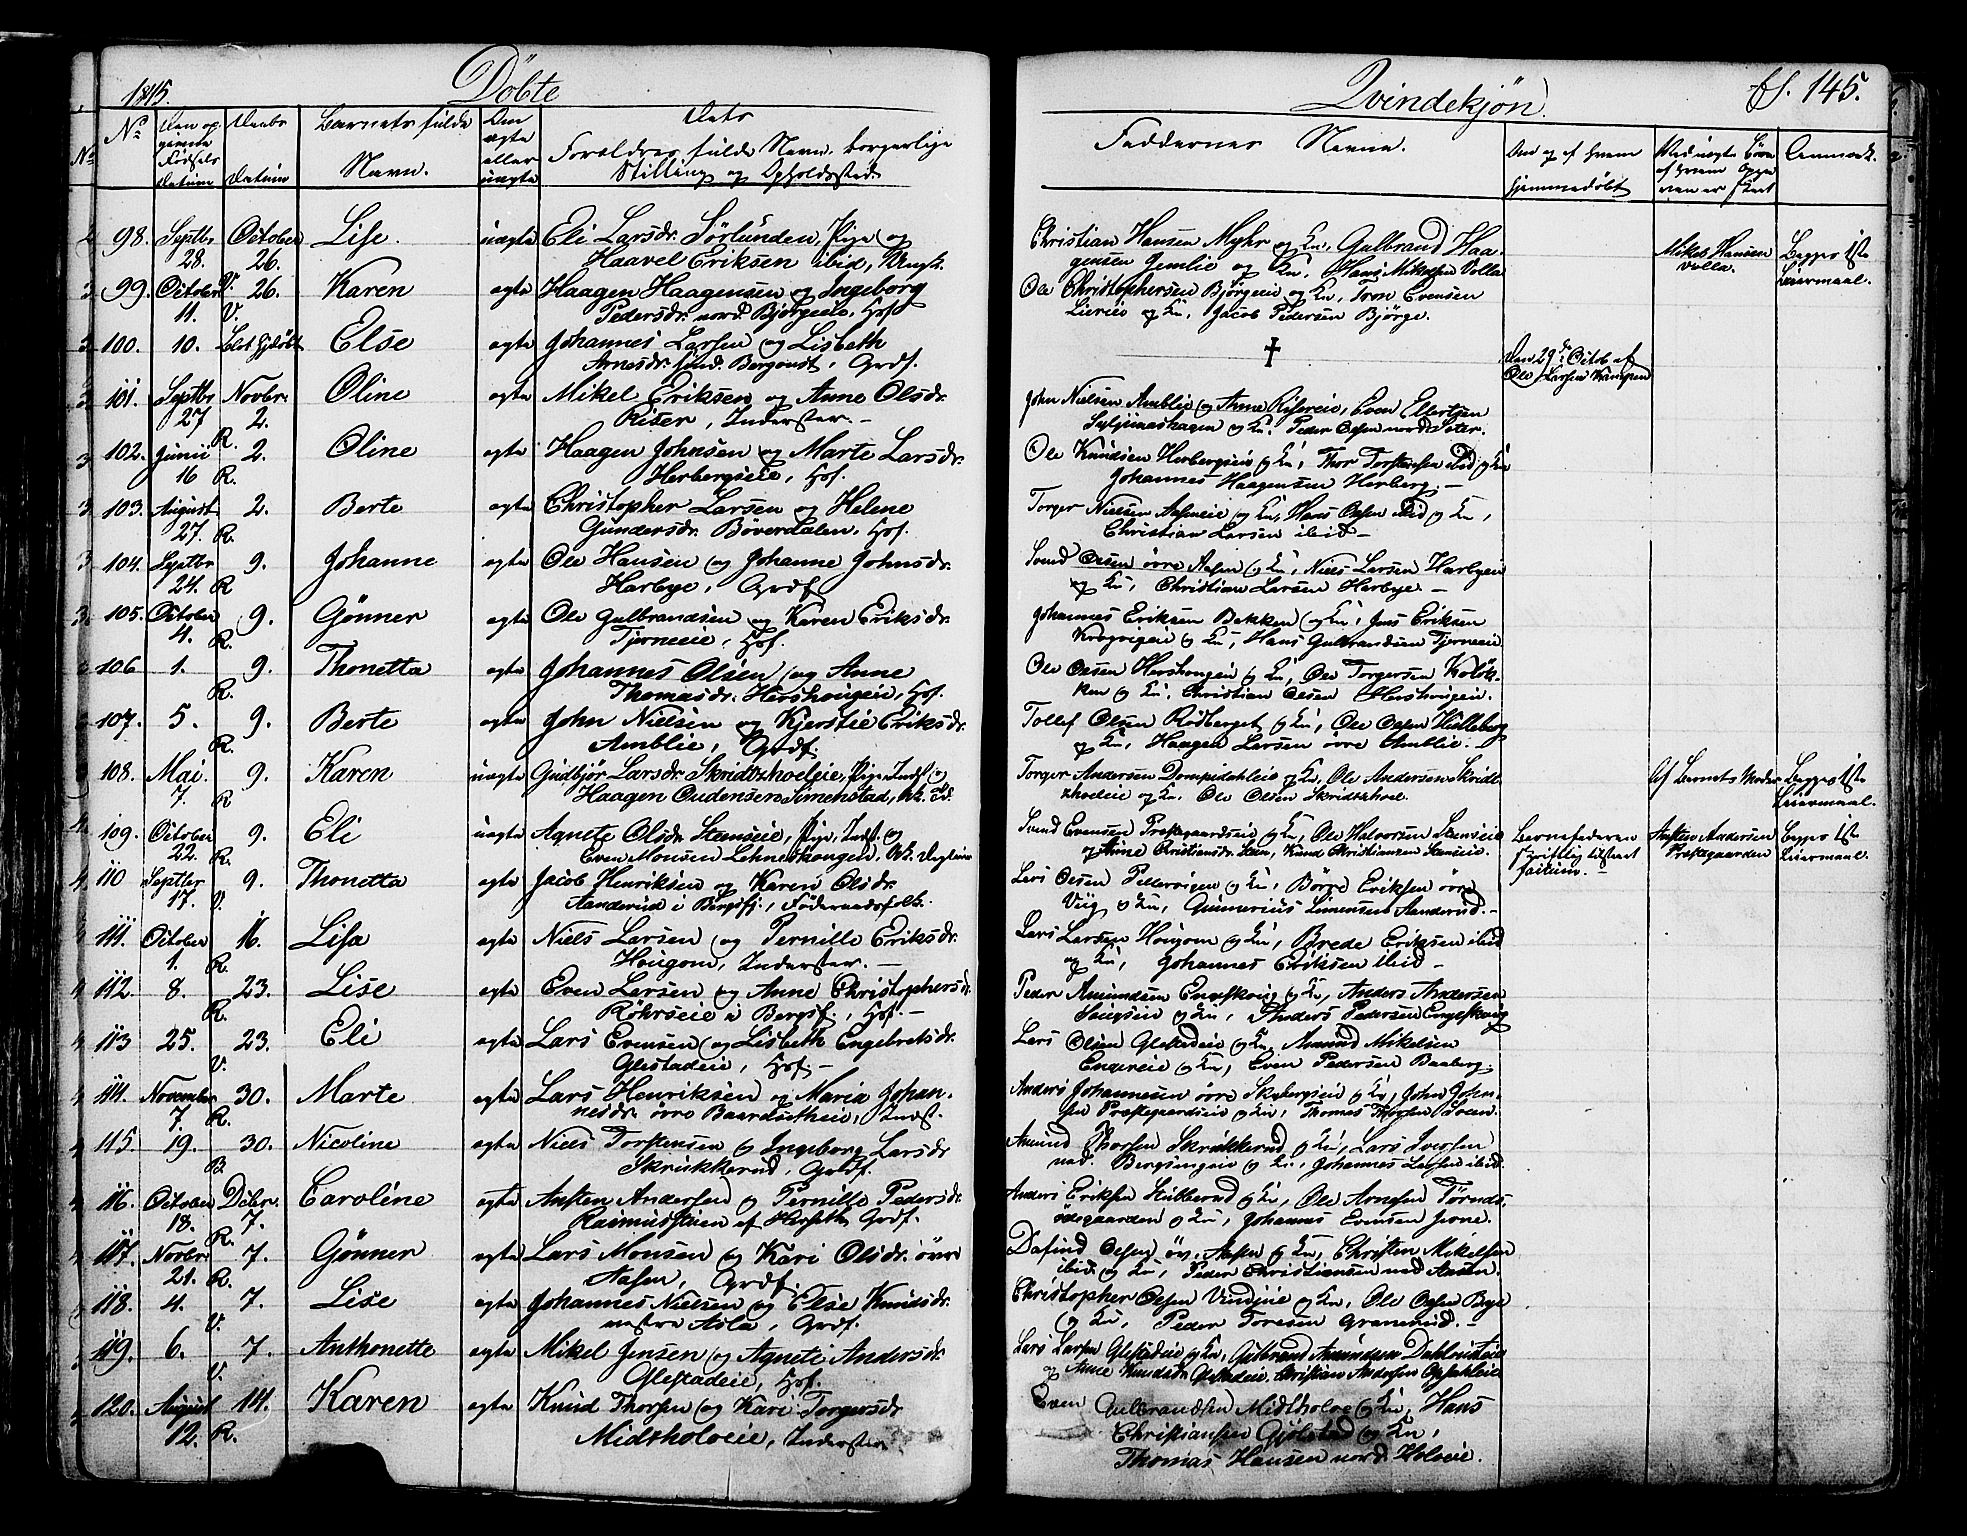 1845. Döbte
Qvindekjön. fl. 145.
No No Den og Daabs Barnets fulde Om Dets
Födsels Datum Datum Navn. ægte eller uægte Forældres fulde Navn, borgerlige
Stilling og Opholdssted
Faddernes Navne. Om og af hvem hjemmedöbt Anmærk.
98. Septbr 28. October 26. V. Lise. uægte Eli Larsdr. Sörlunden, Pige og
Haavel Eriksen ibid, Ungk.
Christian Hansen Myhr og Kn, Gulbrand Haa-
gensen Gemlie og Kn, Hans Mikelsen Volla
Mikel Hansen Volla
Begges 1ste Leiermaal.
99. October 11. 26. V. Karen ægte Haagen Haagensen og Ingeborg
Pedersdr. nord. Björgeeie, Hsf.
Ole Christophersen Björgeeie og Kn, Torn Evensen
Lieriee og Kn, Jacob Pedersen Björge.
100. 10. Blot hjdöbt Else ægte Johannes Larsen og Lisbeth
Arnesdr. sönd. Bergundt, Grdf.
†
Den 29de Octob. af
Ole Larsen Kampen
101. Septbr 27 Novbr. 2. R. Oline ægte Mikel Eriksen og Anne Olsdr.
Riser, Inderster. —
John Nielsen Amblie og Anne Risereie, Even Ellertsen
Siljumashagen og Kn. Peder Olsen nordr Seter.
102. Junii 16 2. R. Oline ægte Haagen Johnsen og Marte Larsdr.
Herbergseie, Hsf.
Ole Knudsen Herbergseie og Kn, Thor Torstensen ibid og Kn
Johannes Haagensen Herberg. —
103. August 27. 2. R. Berte ægte Christopher Larsen og Helene
Gundersdr. Böverdalen, Hsf.
Torger Nielsen Aaseneie og Kn, Hans Olsen ibid og Kn,
Christian Larsen ibid —
104. Septbr 24. 9. R Johanne ægte Ole Hansen og Johanne Johnsdr.
Harbye, Grdf
Svend Olsen övre Aasen og Kn, Niels Larsen Harbyeie
og Kn, Christian Larsen Harbye. —
105. October 4. 9. R. Gönner ægte Ole Gulbrandsen og Karen Eriksdr.
Tjerneeie, Hsf.
Johannes Eriksen Bakken og Kn, Jens Eriksen
Krogvigeie og Kn, Hans Gulbrandsen Tjerneeie
106 1. 9. R. Thonetta ægte Johannes Olsen og Anne
Thomasdr. Hershougeie, Hsf.
Ole Olsen Hershougeie og Kn, Ole Torgersen Kolök-
ken og Kn, Christian Olsen Hershougeie.
107. 5. 9. R. Berte ægte John Nielsen og Kjerstie Eriksdr.
Amblie, Grdf.
Tollef Olsen Rödberget og Kn, Ole Olsen Hulleberg
og Kn, Haagen Larsen övre Amblie. —
108. Mai. 7. 9. R Karen uægte Gudbjör Larsdr. Skridtzholeie, Pige, Indst og
Haagen Oudensen Simenstad,
Torger Andersen Dompidahleie og Kn, Ole Andersen Skridt
zholeie og Kn, Ole Olsen Skridtzhol.
Af Barnets Moder
Begges 1ste Leiermaal.
109. October 22. 9. R. Eli uægte Agnete Olsdr. Stenseie, Pige, Indst. og
Even Monsen Lehneskougen,
Svend Evensen Præstegaardseie og Kn, Ole Halvorsen Stenseie
og Anne Christiansdr. Steen, Knud Christiansen Stenseie.
Barnefaderen
skriftlig tilstaaet
factum. —
Austen Andersen
Præstegaarden
Begges 1ste Leiermaal.
110 Septbr 17. 9. V. Thonetta ægte Jacob Henriksen og Karen Olsdr.
Aanderud i Bergsfj., Föderaadsfolk.
Lars Olsen Pellervigen og Kn, Börre Eriksen övre
Viig og Kn, Gunnerius Simensen Aanderud. —
111. October 1. 16. R. Lisa ægte Niels Larsen og Pernille Eriksdr.
Hougom, Inderster. —
Lars Larsen Hougom og Kn, Brede Eriksen ibid
og Kn, Johannes Eriksen ibid —
112. 8. 23. R. Lise ægte Even Larsen og Anne Christophersdr.
Röhrseie i Bergsf., Hsf. —
Peder Amundsen Engeskoug og Kn, Anders Andersen
Hougseie og Kn, Anders Pedersen Engeskoug
113 25. 23. V. Eli ægte Lars Evensen og Lisbeth Engebretsdr.
Glestadeie, Hsf. —
Lars Olsen Glestadeie og Kn, Amund Mikelsen
Engereie og Kn, Even Pedersen Baaberg.
114. November 7. 30. R. Marte ægte Lars Henriksen og Maria Johan-
nesdr. övre Baardsetheie, Indst.
Anders Johannesen övre Skybergseie og Kn, John John-
sen Præstegaardseie og Kn, Thomas Thorsen Sveen.
115. 19. 30. B Nicoline ægte Niels Torstensen og Ingeborg Larsdr.
Skrukkerud, Grdf.
Amund Thorsen Skrukkerud og Kn, Lars Iversen
ned. Bergsengeie og Kn, Johannes Larsen ibid.
116. October 18. Debr. 7. R. Caroline ægte Austen Andersen og Pernille Pedersdr.
Rasmusstuen af Herseth, Grdf.
Anders Eriksen Hubberud og Kn, Ole Arnesen Törnds-
ödegaarden og Kn, Johannes Evensen Jevne.
117. Novbr. 21. 7. R. Gönner ægte Lars Monsen og Kari Olsdr. övre
Aasen, Grdf.
Dafind Olsen öv. Aasen og Kn, Christen Mikelsen
ibid og Kn, Peder Christiansen ned Aasen.
118. 4. 7. V. Lise ægte Johannes Nielsen og Else Knudsdr.
nestre Asla, Grdf.
Christopher Olsen Vindjuie og Kn, Ole Olsen Bye
og Kn, Peder Toresen Granerud. —
119. 6. 7. V. Anthonette ægte Mikel Jensen og Agnete Andersdr.
Glestadeie, Hsf.
Lars Larsen Glestadeie og Kn, Gulbrand Amundsen Dahlsveeie
og Anne Knudsdr. Glestadeie, Christian Andersen Opsahleie
120. August 12. 14. R. Karen ægte Knud Thorsen og Kari Torgersdr.
Midtholoeie, Inderster
Even Gulbrandsen Midtholoe og Kn, Hans
Christiansen Gjölstad og Kn,
Thomas Hansen nord. Holoeie.